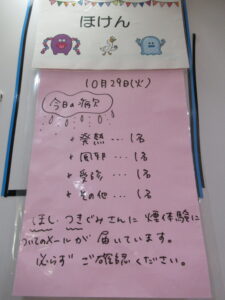 ほけん
10月29日(火)
今日の病欠
+ 発熱 … 1名
+ 風邪 … 1名
+ 受診 … 1名
+ その他 … 1名
ほし、つきぐみさんに 煙体験に
ついてのメールが 届いています。
必らず ご確認 ください。